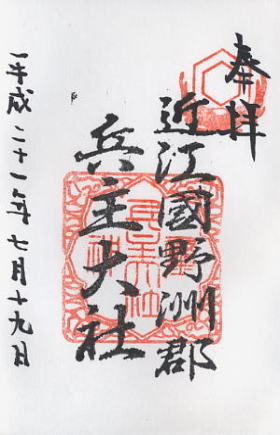 奉拝
近江國野洲郡
兵主大社
平成二十一年七月十九日